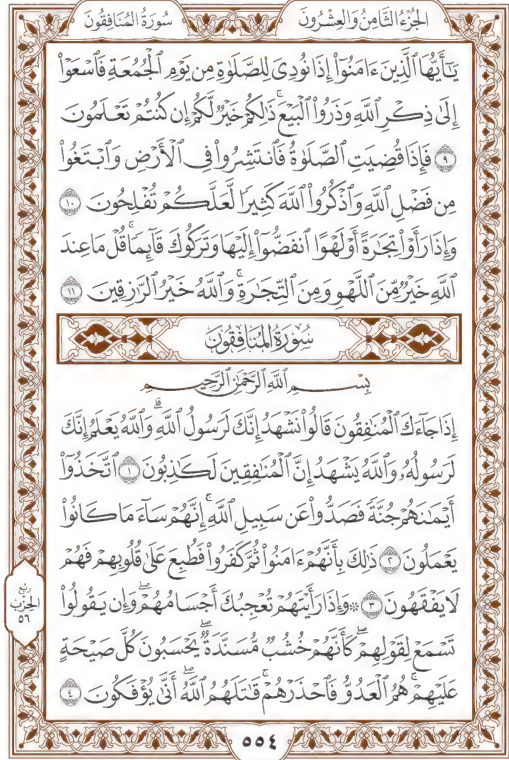 سُورَةُ المُنَافِقُونَ الجُزْءُ الثَّامِنُ وَالعِشْرُونَ
يَـٰٓأَيُّهَا ٱلَّذِينَ ءَامَنُوٓاْ إِذَا نُودِىَ لِلصَّلَوٰةِ مِن يَوْمِ ٱلْجُمُعَةِ فَٱسْعَوْاْ
إِلَىٰ ذِكْرِ ٱللَّهِ وَذَرُواْ ٱلْبَيْعَۚ ذَٰلِكُمْ خَيْرٌ لَّكُمْ إِن كُنتُمْ تَعْلَمُونَ
٩ فَإِذَا قُضِيَتِ ٱلصَّلَوٰةُ فَٱنتَشِرُواْ فِى ٱلْأَرْضِ وَٱبْتَغُواْ
مِن فَضْلِ ٱللَّهِ وَٱذْكُرُواْ ٱللَّهَ كَثِيرًا لَّعَلَّكُمْ تُفْلِحُونَ ١٠
وَإِذَا رَأَوْاْ تِجَـٰرَةً أَوْ لَهْوًا ٱنفَضُّوٓاْ إِلَيْهَا وَتَرَكُوكَ قَآئِمًاۚ قُلْ مَا عِندَ
ٱللَّهِ خَيْرٌ مِّنَ ٱللَّهْوِ وَمِنَ ٱلتِّجَـٰرَةِۚ وَٱللَّهُ خَيْرُ ٱلرَّٰزِقِينَ ١١
سُورَةُ المُنَافِقُونَ
بِسْمِ ٱللَّهِ ٱلرَّحْمَـٰنِ ٱلرَّحِيمِ
إِذَا جَآءَكَ ٱلْمُنَـٰفِقُونَ قَالُواْ نَشْهَدُ إِنَّكَ لَرَسُولُ ٱللَّهِۗ وَٱللَّهُ يَعْلَمُ إِنَّكَ
لَرَسُولُهُۥ وَٱللَّهُ يَشْهَدُ إِنَّ ٱلْمُنَـٰفِقِينَ لَكَـٰذِبُونَ ١ ٱتَّخَذُوٓاْ
أَيْمَـٰنَهُمْ جُنَّةً فَصَدُّواْ عَن سَبِيلِ ٱللَّهِۚ إِنَّهُمْ سَآءَ مَا كَانُواْ
يَعْمَلُونَ ٢ ذَٰلِكَ بِأَنَّهُمْ ءَامَنُواْ ثُمَّ كَفَرُواْ فَطُبِعَ عَلَىٰ قُلُوبِهِمْ فَهُمْ
لَا يَفْقَهُونَ ٣ ۞ وَإِذَا رَأَيْتَهُمْ تُعْجِبُكَ أَجْسَامُهُمْۖ وَإِن يَقُولُواْ
تَسْمَعْ لِقَوْلِهِمْۖ كَأَنَّهُمْ خُشُبٌ مُّسَنَّدَةٌۖ يَحْسَبُونَ كُلَّ صَيْحَةٍ
عَلَيْهِمْۚ هُمُ ٱلْعَدُوُّ فَٱحْذَرْهُمْۚ قَـٰتَلَهُمُ ٱللَّهُۖ أَنَّىٰ يُؤْفَكُونَ ٤
ربع
الحزب
٥٦
٥٥٤